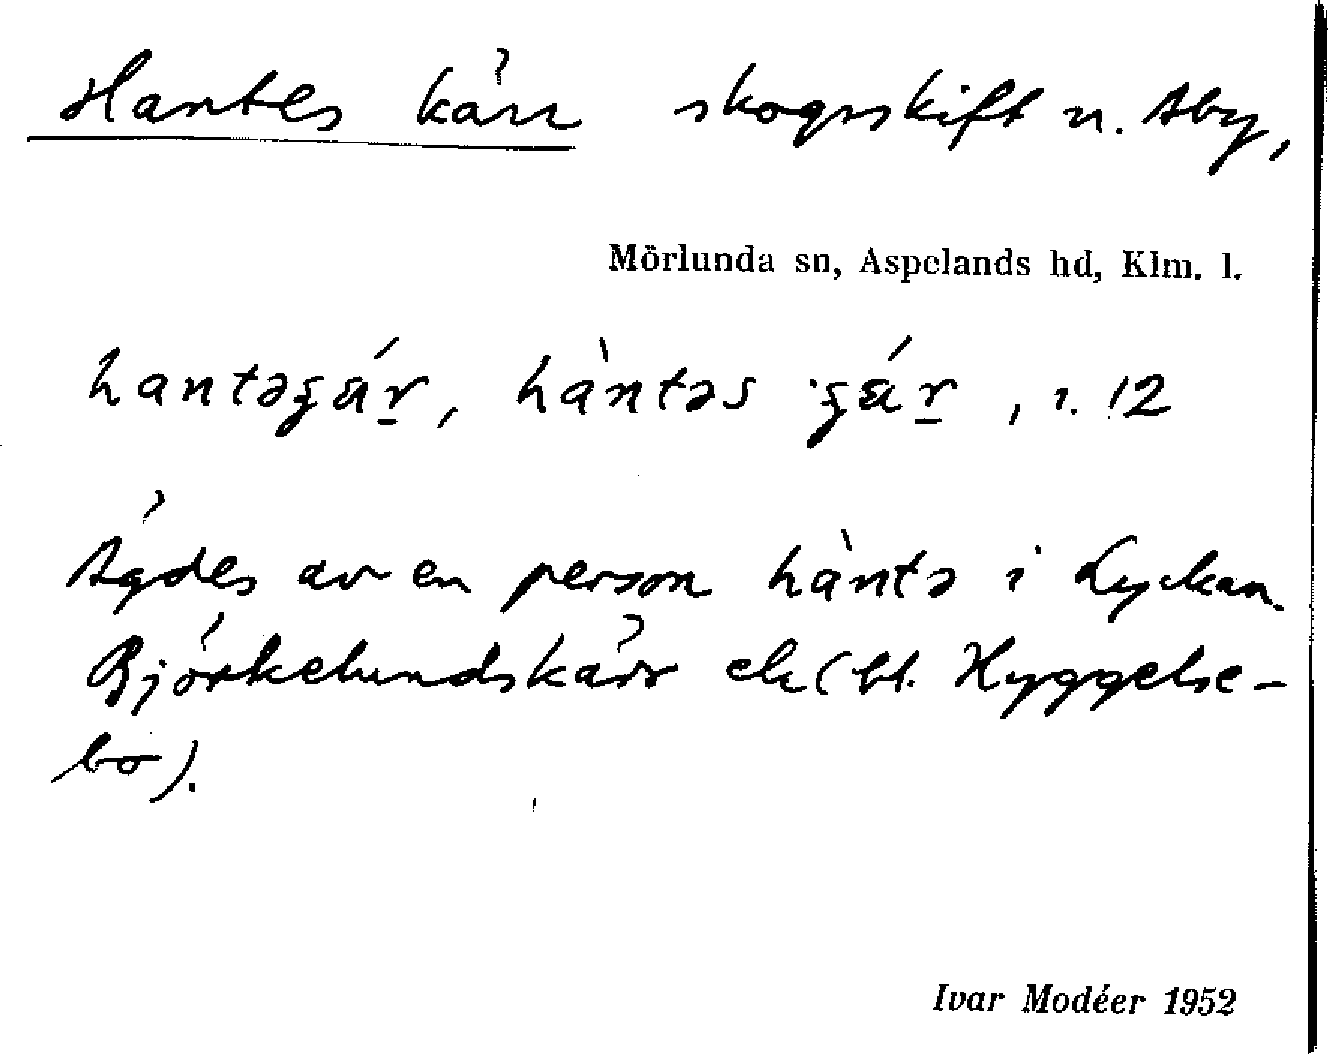 Hantes kärr skogsskift n. Åby,
Mörlunda sn, Aspelands hd, Klm. l.
hantəʒä́r̠, hàntəs ʒä́r̠, 1. 12
Ägdes av en person hàntə i Lyckan.
Björkelundskärr ek (bl. Hyggelse-
bo).
Ivar Modéer 1952